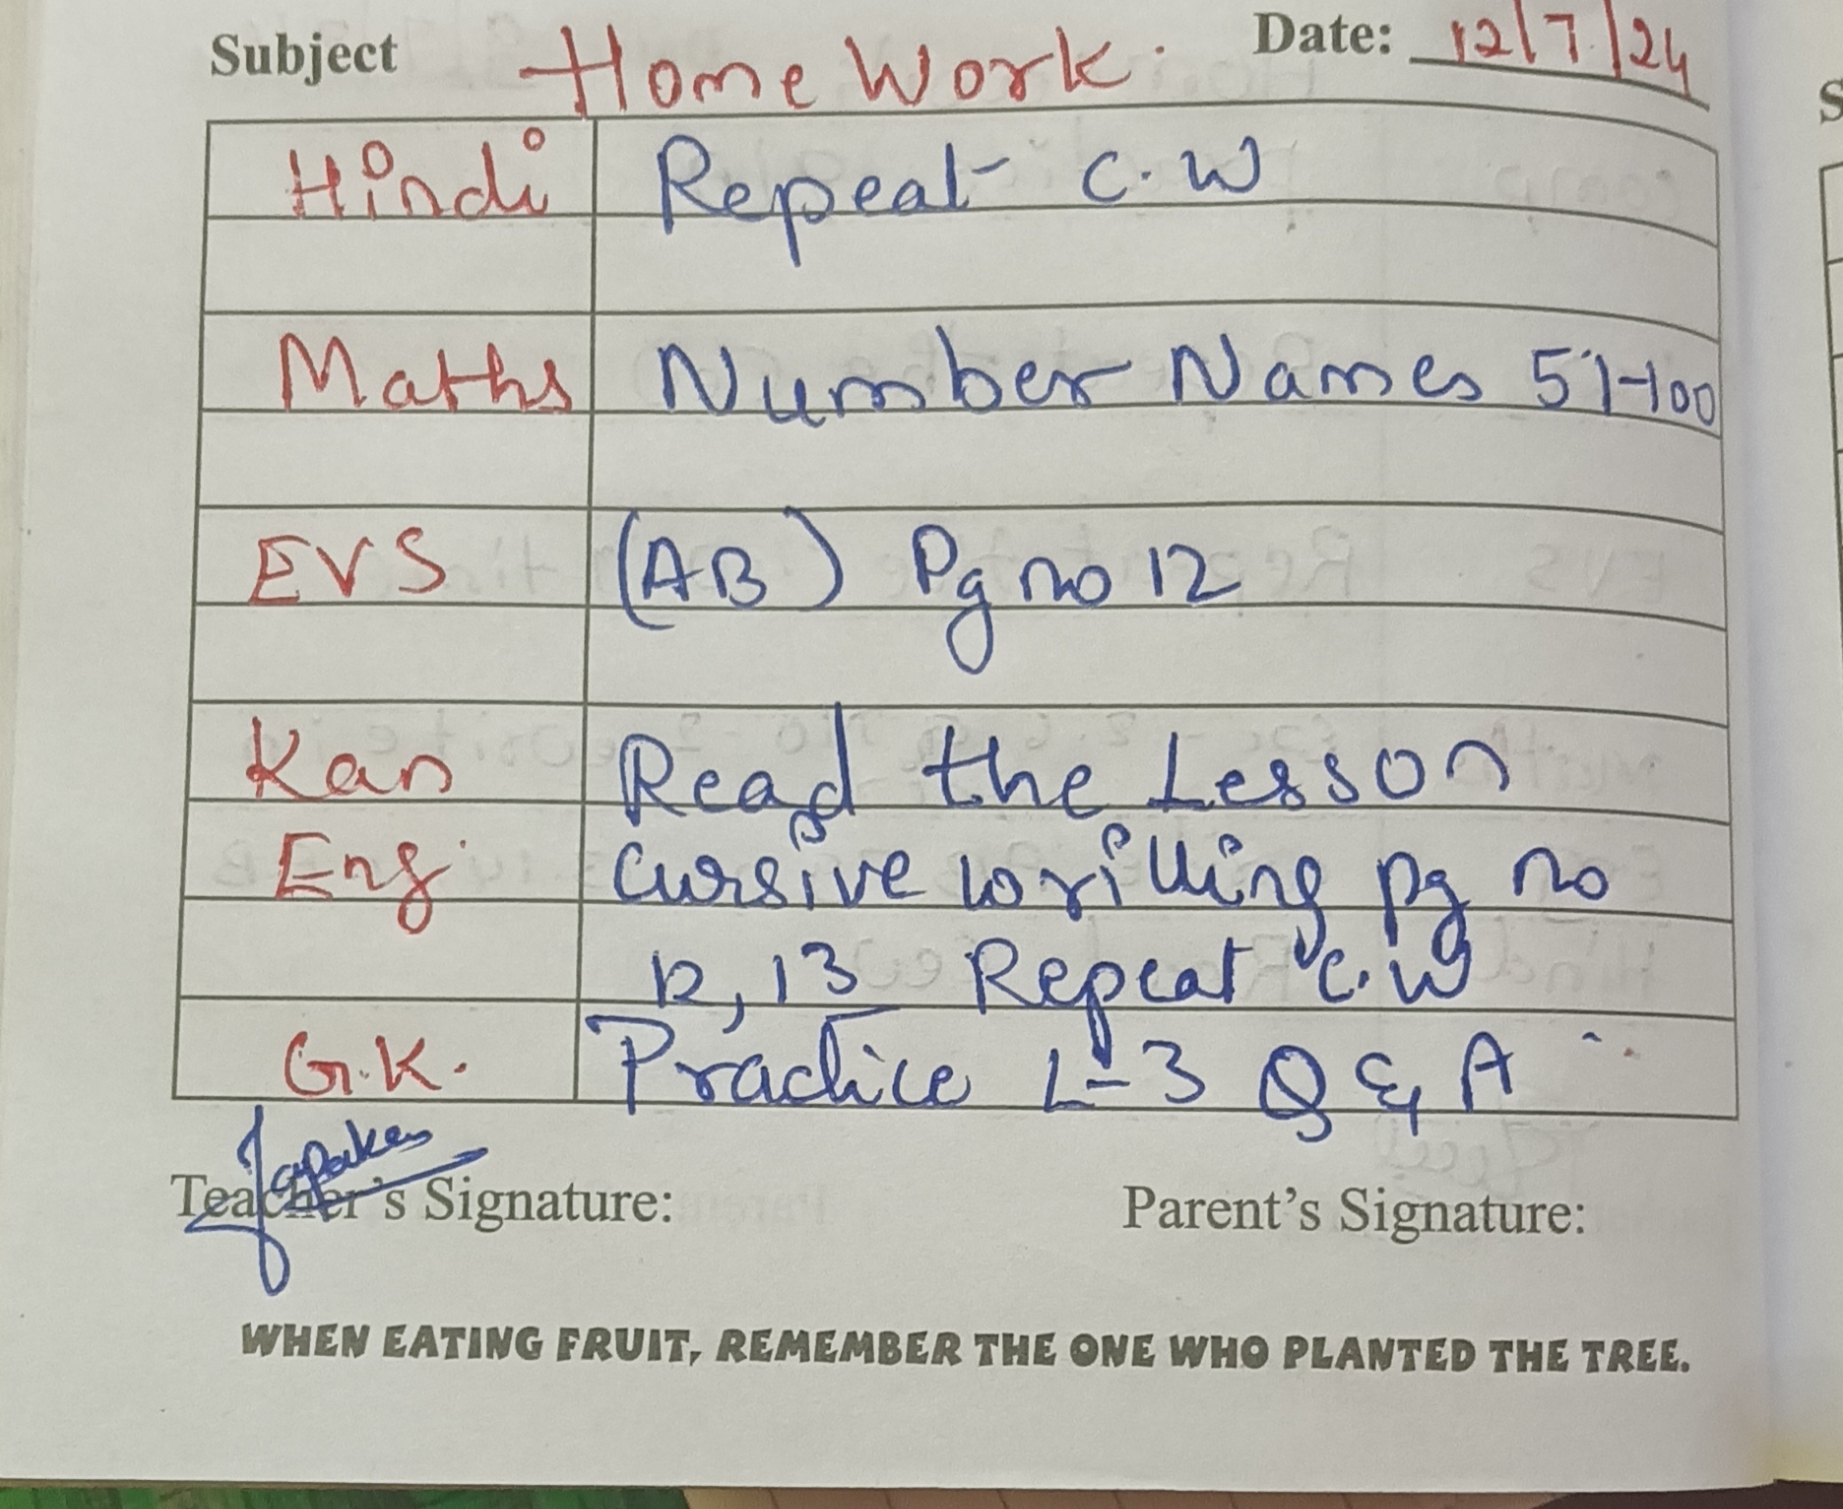 Subject Home Work. Date: 12/7/24
Hindi Repeat C.W
Maths Number Names 51-100
EVS (AB) Pg no 12
Kan Read the Lesson
Eng Cursive writing pg no
12, 13 Repeat C.W
G.K. Practice L-3 Q & A
Teacher's Signature: Parent's Signature:
WHEN EATING FRUIT, REMEMBER THE ONE WHO PLANTED THE TREE.